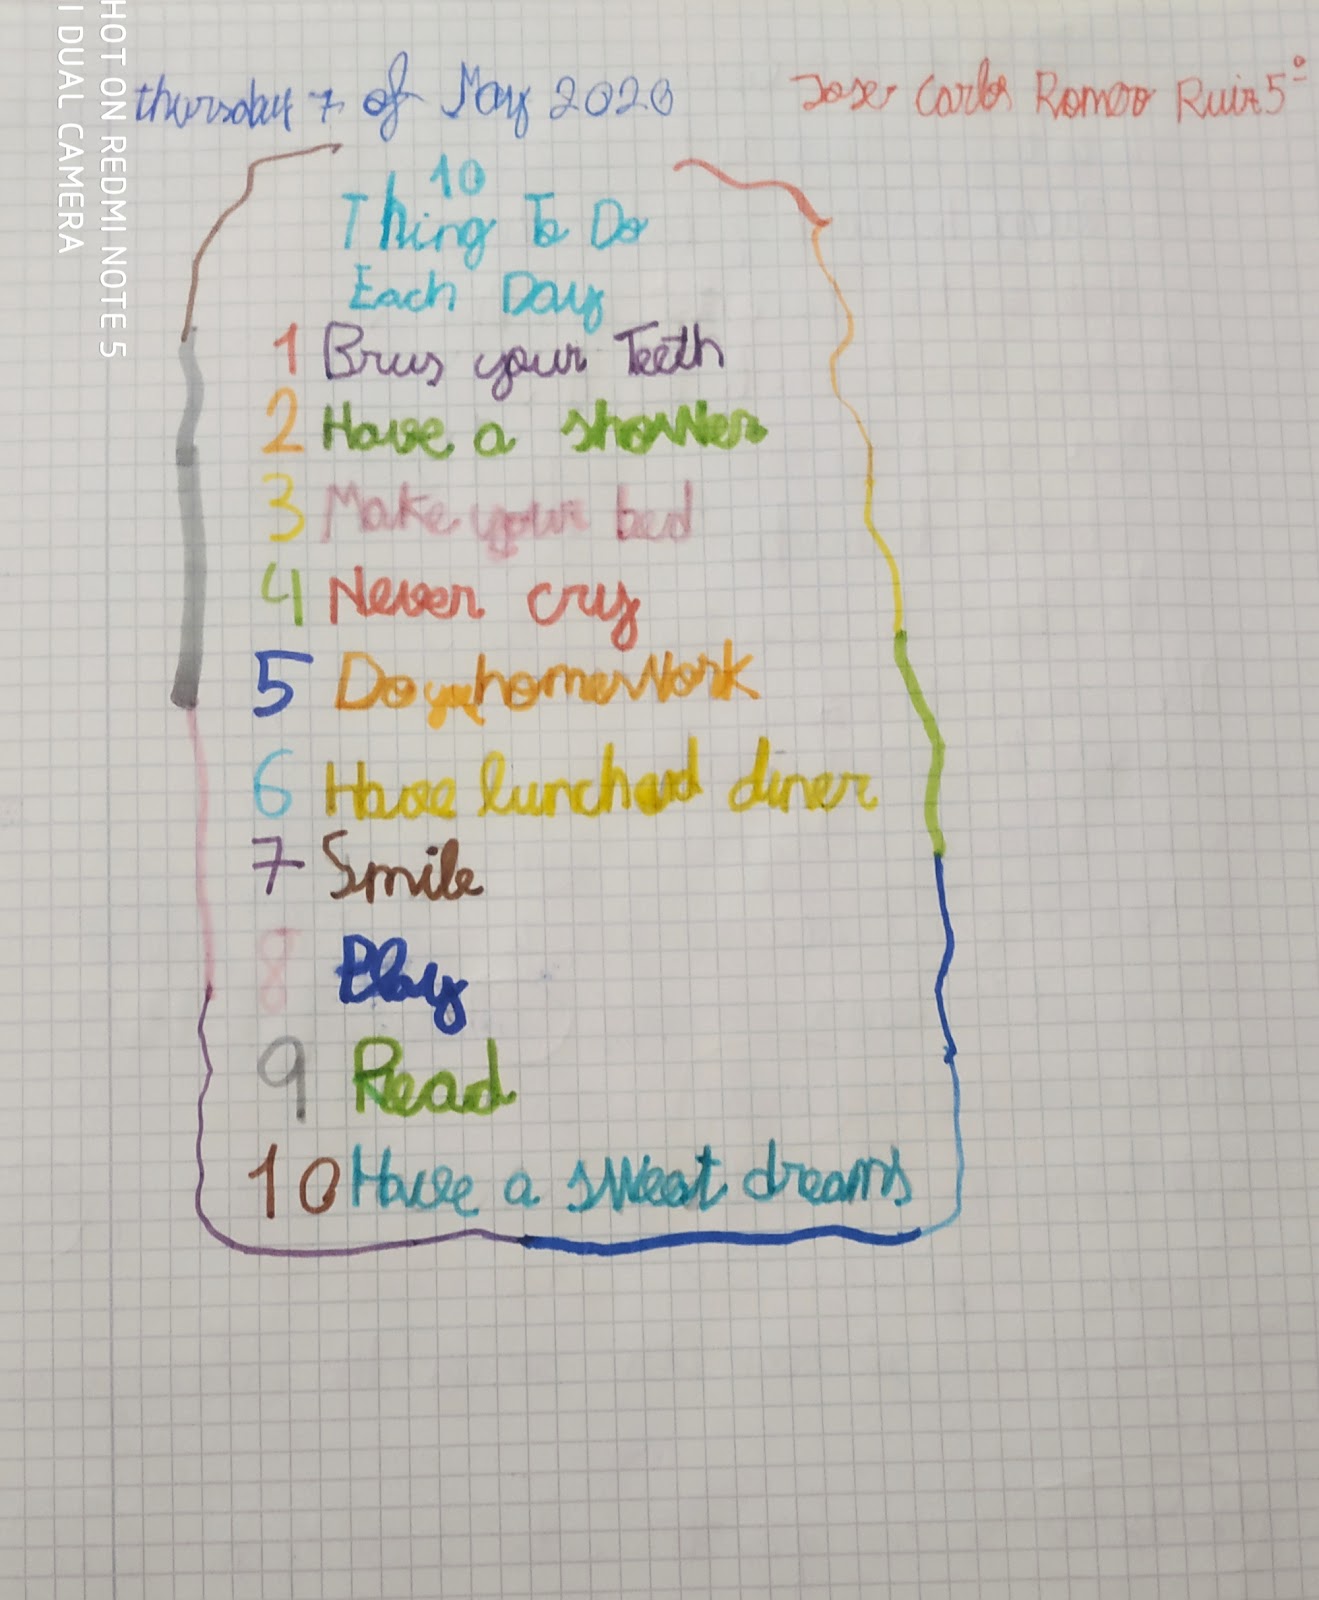 SHOT ON REDMI NOTE 5
I DUAL CAMERA
thursday 7 of May 2020
Jose Carlos Romero Ruiz 5º
10
Thing To Do
Each Day
1 Brus your Teeth
2 Have a shower
3 Make your bed
4 Never cry
5 Do your homework
6 Have lunch and diner
7 Smile
8 Play
9 Read
10 Have a sweat dreams